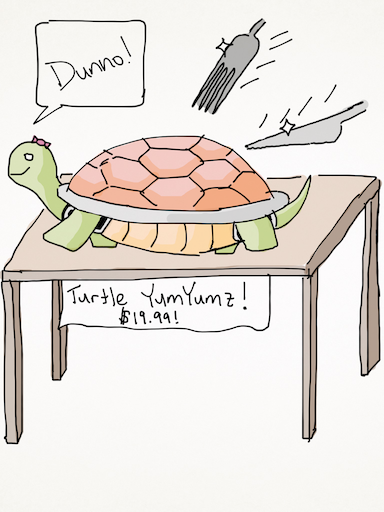 Dunno!
Turtle YumYumz!
$19.99!